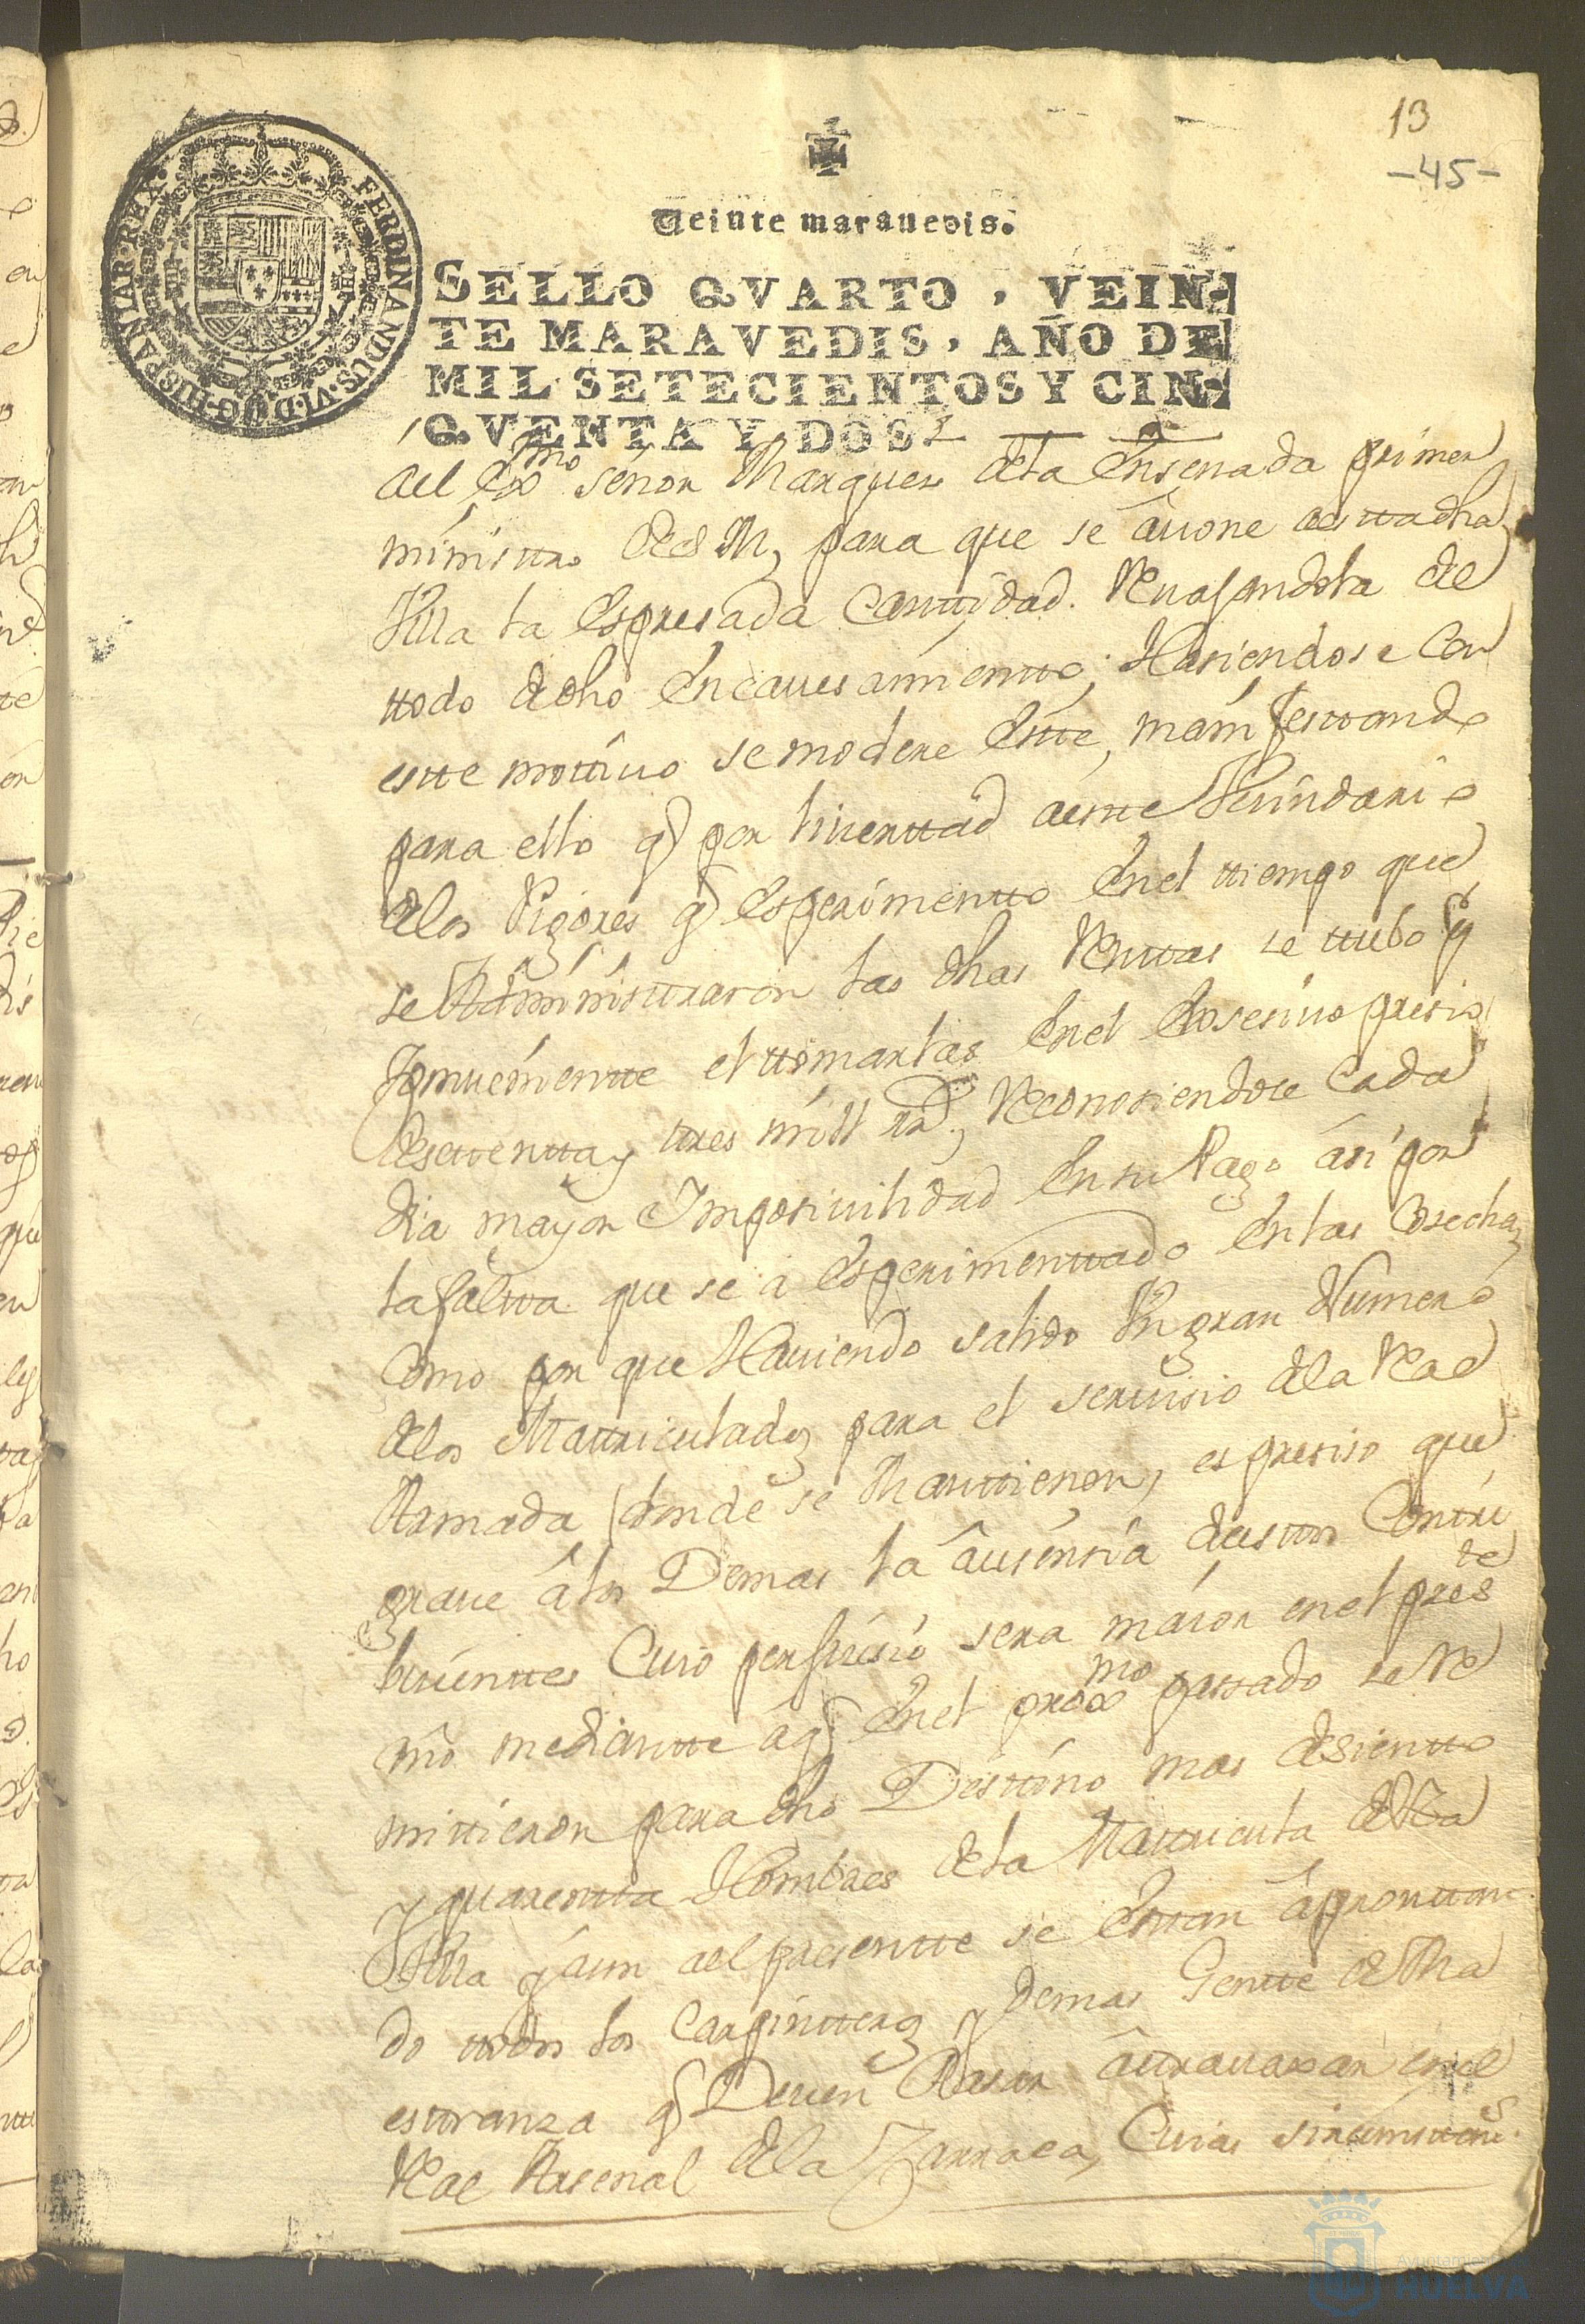 13
-45-
Veinte maravedis.
SELLO QVARTO, VEIN-
TE MARAVEDIS, AÑO DE
MIL SETECIENTOS Y CIN-
QVENTA Y DOS
FERDINANDUS·VI·D·G·HISPANIAR·REX·
del Exmo señor Marques dela Ensenada primer
ministro de S M, para que se auone aestta dha
Villa la Espresada Canttidad. Reuajandola de
ttodo dho Encauesamientto; Hasiendose Con
estte mottiuo se modere Estte, manifesttando
para ello q por liuerttad aestte Vesindario
delos Rigores q Esperimentto Enel ttiempo que
se Administraron las dhas Renttas se ttubo pr
Combenientte el ttomarlas Enel Exsesiuo presio
de settentta y ttres mill rs, Reconosiendose Cada
dia mayor Imposiuilidad En su Pago asi por
la faltta que se a Esperimenttado En las Cosechas
Como por que Hauiendo salido Un gran Numero
delos Mattriculados para el seruisio dela Real
Armada (donde se Manttienen, es presiso que
graue â los Demas la âusensia destos Contri
buienttes Cuio perjuisio sera maior en el preste
año mediantte âq Enel proxmo passado se Re
mittieron para dho Desttino mas de sientto
y quarentta Hombres dela Mattricula de Estta
Villa y aun al presentte se Esttan âpronttan
do ttodos los Carpintteros y demas Gentte de Ma
esttranza q Deuen Pasar âttrauaxar en el
Real Arsenal dela Zarraca, Cuias sircunsttans
Ayuntamiento
HUELVA